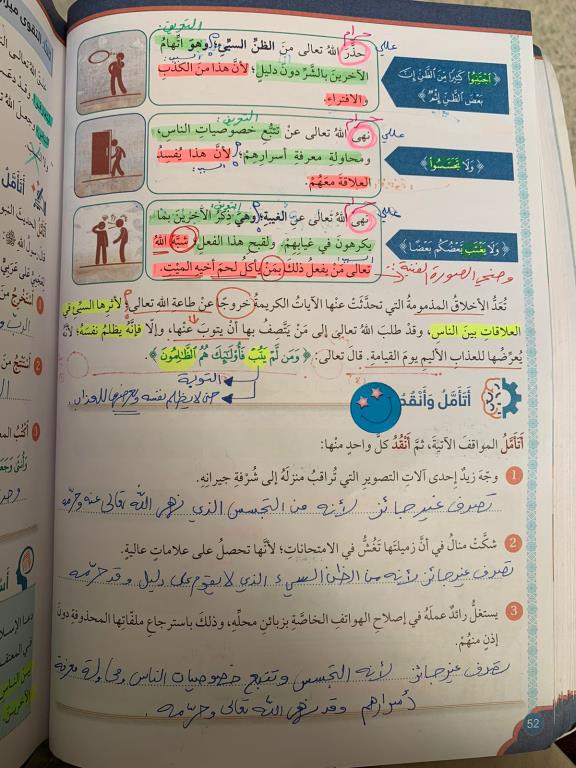 التعريف
حرام
عللي
﴿ اجْتَنِبُوا كَثِيرًا مِنَ الظَّنِّ إِنَّ
بَعْضَ الظَّنِّ إِثْمٌ ﴾
حذَّرَ اللهُ تعالى منَ الظنِّ السيِّئِ؛ وهوَ اتِّهامُ
الآخرينَ بالشَّرِّ دونَ دليلٍ؛ لأنَّ هذا منَ الكذبِ
والافتراءِ.
التعريف
حرام
عللي
﴿ وَلَا تَجَسَّسُوا ﴾
نهى اللهُ تعالى عنْ تتبُّعِ خصوصياتِ الناسِ،
ومحاولةِ معرفةِ أسرارِهمْ؛ لأنَّ هذا يُفسِدُ
العلاقةَ معَهُمْ.
التعريف
عللي
﴿ وَلَا يَغْتَب بَّعْضُكُم بَعْضًا ﴾
نهى اللهُ تعالى عنِ الغيبةِ؛ وهيَ ذكْرُ الآخرينَ بما
يكرهونَ في غيابِهِمْ، ولقبحِ هذا الفعلِ شبَّهَ اللهُ
تعالى مَنْ يفعلُ ذلكَ بمَنْ يأكلُ لحمَ أخيهِ الميْتِ.
وضحي الصورة الفنية
تُعَدُّ الأخلاقُ المذمومةُ التي تحدَّثَتْ عنْها الآياتُ الكريمةُ خروجًا عنْ طاعةِ اللهِ تعالى؛ لأثرِها السيِّئِ في
العلاقاتِ بينَ الناسِ، وقدْ طلبَ اللهُ تعالى إلى مَنْ يتَّصفُ بها أنْ يتوبَ عنْها، وإلَّا فإنَّهُ يظلمُ نفسَهُ؛ لأنَّهُ
يُعرِّضُها للعذابِ الأليمِ يومَ القيامةِ. قالَ تعالى: ﴿ وَمَن لَّمْ يَتُبْ فَأُولَٰئِكَ هُمُ الظَّالِمُونَ ﴾
التوبة
حتى لا يظلم نفسه ويعرضها للعذاب
أَتَأَمَّلُ وَأَنْقُدُ
أَتَأَمَّلُ المواقفَ الآتيةَ، ثمَّ أَنْقُدُ كلَّ واحدٍ منْها:
1 وجَّهَ زيدٌ إحدى آلاتِ التصويرِ التي تُراقبُ منزلَهُ إلى شُرْفةِ جيرانِهِ.
تصرف غير جائز لأنه من التجسس الذي نهى الله تعالى عنه وحرّمه
2 شكَّتْ منالُ في أنَّ زميلتَها تَغُشُّ في الامتحاناتِ؛ لأنَّها تحصلُ على علاماتٍ عاليةٍ.
تصرف غير جائز لأنه من الظن السيء الذي لا يقوم على دليل وقد حرّمه
3 يستغلُّ رائدٌ عملَهُ في إصلاحِ الهواتفِ الخاصَّةِ بزبائنِ محلِّهِ، وذلكَ باسترجاعِ ملفّاتِها المحذوفةِ دونَ
إذنٍ منهُمْ.
تصرف غير جائز لأنه التجسس وتتبع خصوصيات الناس ومحاولة معرفة
أسرارهم وقد نهى الله تعالى وحرّمه.
52